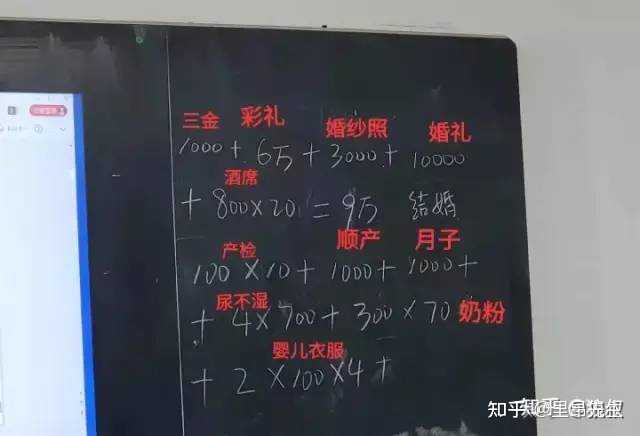 三金 彩礼 婚纱照 婚礼
1000 + 6万 + 3000 + 10000
酒席
+ 800×20 = 9万 结婚
产检 顺产 月子
100×10 + 1000 + 1000 +
尿不湿
+ 4×700 + 300×70 奶粉
婴儿衣服
+ 2×100×4 +
知乎